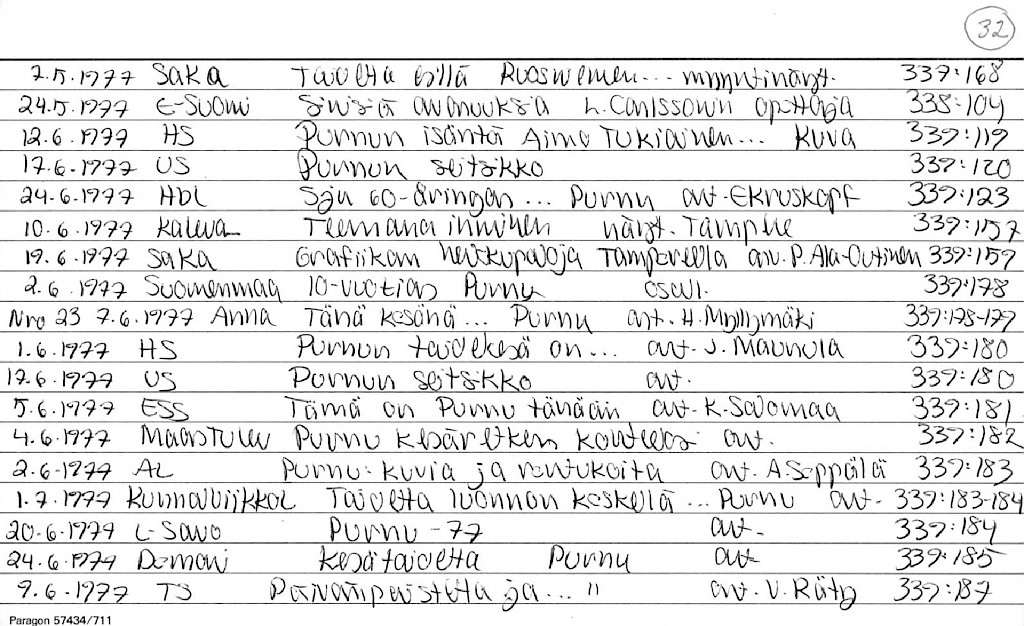 32
7.5.1977 SAKA Taidetta esillä Ruoswemen... myyntinäyt. 339:168
24.5.1977 E-Suomi Sinisiä avaruuksia L. Carlssonin opettaja 338:104
12.6.1977 HS Purnun isäntä Aimo Tukiainen... kuva 339:119
17.6.1977 US Purnun seitsikko 339:120
24.6.1977 Hbl Sju 60-åringar... Purnu art. E Kruskopf 339:123
10.6.1977 Kaleva Teemana ihminen näyt. Tampere 339:157
19.6.1977 SAKA Grafiikan herkkupaloja Tampereella arv. P. Ala-Outinen 339:159
2.6.1977 Suomenmaa 10-vuotias Purnu 339:178
Nro 23 7.6.1977 Anna Tänä kesänä... Purnu art. H. Myllymäki 339:178-179
1.6.1977 HS Purnun taidekesä on... art. J. Maunula 339:180
17.6.1977 US Purnun seitsikko art. 339:180
5.6.1977 ESS Tämä on Purnu tänään art. K. Salomaa 339:181
4.6.1977 Maastulev Purnu kesäretken kohteeksi art. 339:182
2.6.1977 AL Purnu: kuvia ja rentukoita art. A Seppälä 339:183
1.7.1977 Kunnallviikkol Taidetta luonnon keskellä... Purnu art. 339:183-184
20.6.1977 L-Savo Purnu-77 art. 339:184
24.6.1977 Demari Kesätaidetta Purnu art 339:185
9.6.1977 TS Päivänpaistetta ja... " art. V. Räty 339:187
Paragon 57434/711